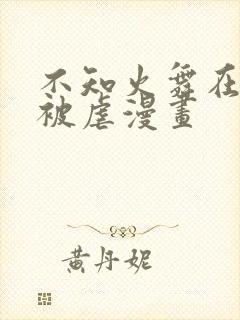 不知火舞在
被虐漫畫
黃丹妮